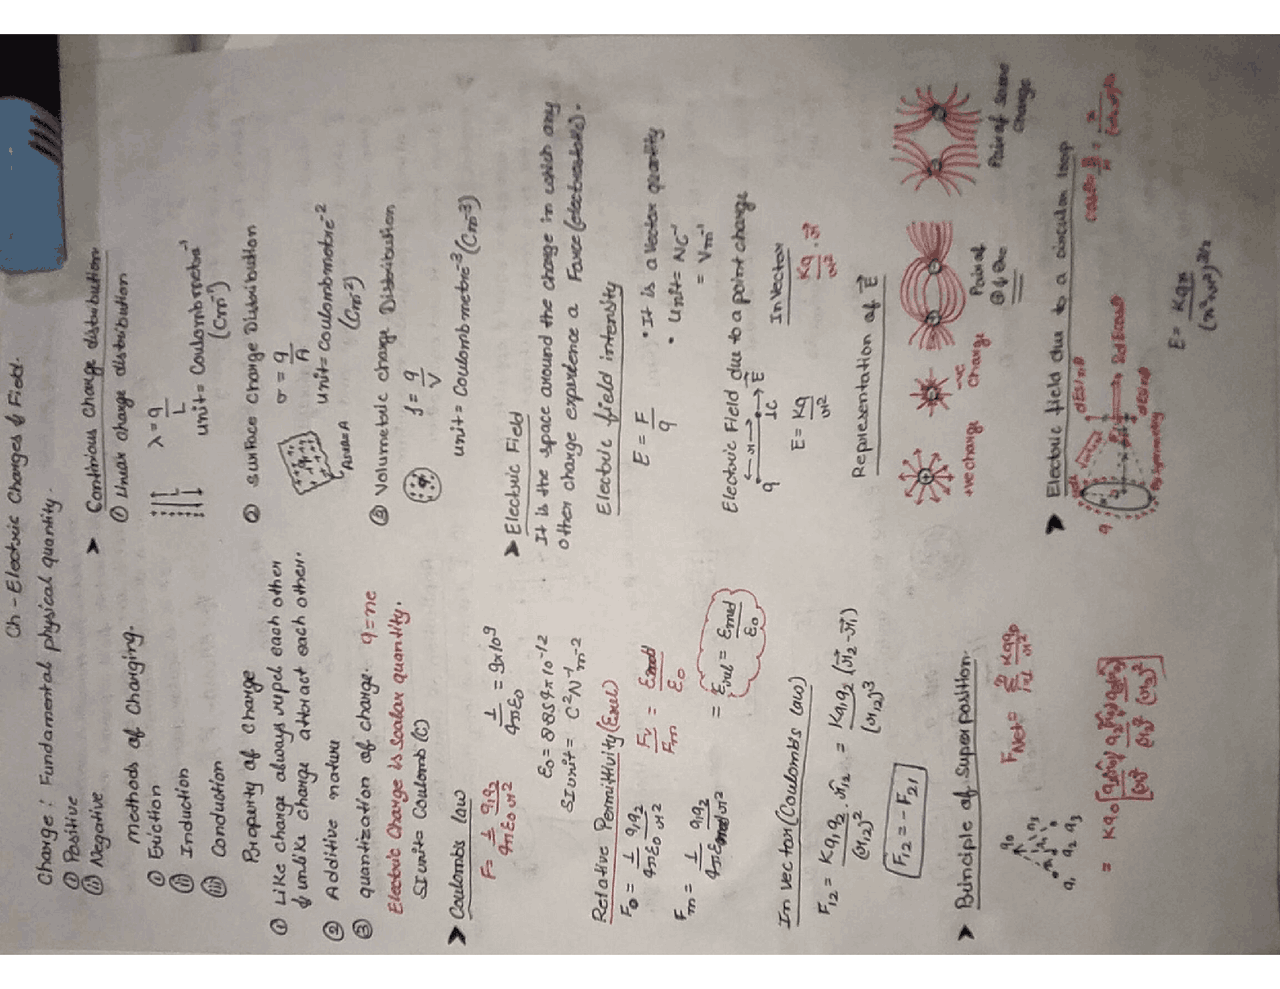 Ch - Electric Charges & Field.
Charge : Fundamental physical quantity.
① Positive
② Negative
methods of Charging.
① Friction
② Induction
③ Conduction
Property of Charge
① Like charge always repel each other
& unlike charge attract each other.
② Additive nature
③ quantization of charge. q=ne
Electric Charge is Scalar quantity.
SI unit= Coulomb (C)
➤ Coulombs law
F= 1/4πε0 q1q2/r² 1/4πε0 = 9x10⁹
ε0 = 8.854x10⁻¹²
SI unit= C²N⁻¹m⁻²
Relative Permittivity (εrel)
F0 = 1/4πε0 q1q2/r² Fv/Fm = εmed/ε0
Fm = 1/4πεmed q1q2/r² = εrel = εmed/ε0
In vector (Coulomb's law)
F12 = Kq1q2/(r12)² . r̂12 = Kq1q2/(r12)³ (r⃗2-r⃗1)
F12 = - F21
➤ Principle of Superposition.
q0
q1 q2 q3
➤ Continious charge distribution
① linear charge distribution
λ = q/L
unit= Coulombmetre⁻¹
(Cm⁻¹)
② surface charge Distribution
σ = q/A
Area=A
unit= Coulombmetre⁻²
(Cm⁻²)
③ Volumetric charge Distribution
ρ = q/V
unit= Coulombmetre⁻³ (Cm⁻³)
➤ Electric Field
It is the space around the charge in which any
other charge expirence a Force (electrostatic).
Electric field intensity
E = F/q • It is a vector quantity
• Unit= NC⁻¹
= Vm⁻¹
Electric Field due to a point charge
q r 1C E⃗
In Vector
E = Kq/r² Kq/r² . r⃗
Representation of E⃗
+ve charge -ve charge Pair of Pair of Same charge
➤ Electric field due to a circular loop
q dEsinθ 2dEcosθ dEsinθ
By Symmetry
E = Kqx/(x²+r²)^3/2